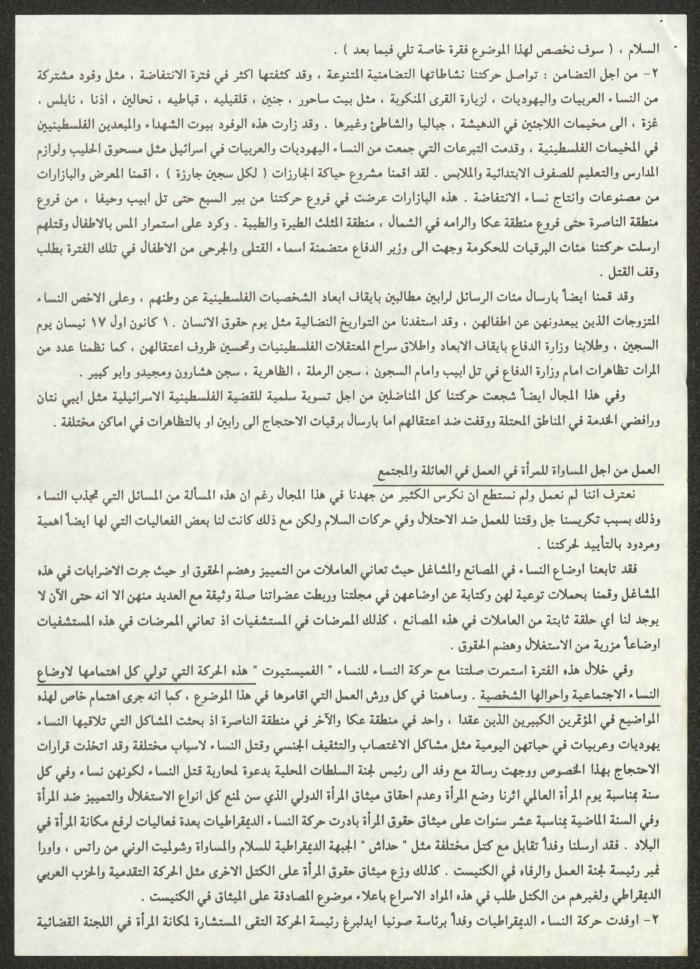 السلام ، ( سوف نخصص لهذا الموضوع فقرة خاصة تلي فيما بعد ) .
٢- من اجل التضامن : تواصل حركتنا نشاطاتها التضامنية المتنوعة ، وقد كثفتها اكثر في فترة الانتفاضة ، مثل وفود مشتركة
من النساء العربيات واليهوديات ، لزيارة القرى المنكوبة ، مثل بيت ساحور ، جنين ، قلقيليه ، قباطيه ، نحالين ، اذنا ، نابلس ،
غزة ، الى مخيمات اللاجئين في الدهيشة ، جباليا والشاطئ وغيرها . وقد زارت هذه الوفود بيوت الشهداء والمبعدين الفلسطينيين
في المخيمات الفلسطينية ، وقدمت التبرعات التي جمعت من النساء اليهوديات والعربيات في اسرائيل مثل مسحوق الحليب ولوازم
المدارس والتعليم للصفوف الابتدائية والملابس . لقد اقمنا مشروع حياكة الجارزات ( لكل سجين جارزة ) ، اقمنا المعرض والبازارات
من مصنوعات وانتاج نساء الانتفاضة . هذه البازارات عرضت في فروع حركتنا من بير السبع حتى تل ابيب وحيفا ، من فروع
منطقة الناصرة حتى فروع منطقة عكا والرامه في الشمال ، منطقة المثلث الطيرة والطيبة . وكرد على استمرار المس بالاطفال وقتلهم
ارسلت حركتنا مئات البرقيات للحكومة وجهت الى وزير الدفاع متضمنة اسماء القتلى والجرحى من الاطفال في تلك الفترة بطلب
وقف القتل .
وقد قمنا ايضاً بارسال مئات الرسائل لرابين مطالبين بايقاف ابعاد الشخصيات الفلسطينية عن وطنهم ، وعلى الاخص النساء
المتزوجات الذين يبعدونهن عن اطفالهن ، وقد استفدنا من التواريخ النضالية مثل يوم حقوق الانسان ١٠ كانون اول ١٧ نيسان يوم
السجين ، وطلابنا وزارة الدفاع بايقاف الابعاد واطلاق سراح المعتقلات الفلسطينيات وتحسين ظروف اعتقالهن ، كما نظمنا عدد من
المرات تظاهرات امام وزارة الدفاع في تل ابيب وامام السجون ، سجن الرملة ، الظاهرية ، سجن هشارون ومجيدو وابو كبير .
وفي هذا المجال ايضاً شجعت حركتنا كل المناضلين من اجل تسوية سلمية للقضية الفلسطينية الاسرائيلية مثل ايبي نتان
ورافضي الخدمة في المناطق المحتلة ووقفت ضد اعتقالهم اما بارسال برقيات الاحتجاج الى رابين او بالتظاهرات في اماكن مختلفة .
العمل من اجل المساواة للمرأة في العمل في العائلة والمجتمع
نعترف اننا لم نعمل ولم نستطع ان نكرس الكثير من جهدنا في هذا المجال رغم ان هذه المسألة من المسائل التي تجذب النساء
وذلك بسبب تكريسنا جل وقتنا للعمل ضد الاحتلال وفي حركات السلام ولكن مع ذلك كانت لنا بعض الفعاليات التي لها ايضاً اهمية
ومردود بالتأييد لحركتنا .
فقد تابعنا اوضاع النساء في المصانع والمشاغل حيث تعاني العاملات من التمييز وهضم الحقوق او حيث جرت الاضرابات في هذه
المشاغل وقمنا بحملات توعية لهن وكتابة عن اوضاعهن في مجلتنا وربطت عضواتنا صلة وثيقة مع العديد منهن الا انه حتى الآن لا
يوجد لنا اي حلقة ثابتة من العاملات في هذه المصانع ، كذلك الممرضات في المستشفيات اذ تعاني الممرضات في هذه المستشفيات
اوضاعاً مزرية من الاستغلال وهضم الحقوق .
وفي خلال هذه الفترة استمرت صلتنا مع حركة النساء للنساء " الفميستيوت " هذه الحركة التي تولي كل اهتمامها لاوضاع
النساء الاجتماعية واحوالها الشخصية . وساهمنا في كل ورش العمل التي اقاموها في هذا الموضوع ، كما انه جرى اهتمام خاص لهذه
المواضيع في المؤتمرين الكبيرين الذين عقدا ، واحد في منطقة عكا والآخر في منطقة الناصرة اذ بحثت المشاكل التي تلاقيها النساء
يهوديات وعربيات في حياتهن اليومية مثل مشاكل الاغتصاب والتثقيف الجنسي وقتل النساء لاسباب مختلفة وقد اتخذت قرارات
الاحتجاج بهذا الخصوص ووجهت رسالة مع وفد الى رئيس لجنة السلطات المحلية بدعوة لمحاربة قتل النساء لكونهن نساء وفي كل
سنة بمناسبة يوم المرأة العالمي اثرنا وضع المرأة وعدم احقاق ميثاق المرأة الدولي الذي سن لمنع كل انواع الاستغلال والتمييز ضد المرأة
وفي السنة الماضية بمناسبة عشر سنوات على ميثاق حقوق المرأة بادرت حركة النساء الديمقراطيات بعدة فعاليات لرفع مكانة المرأة في
البلاد . فقد ارسلنا وفداً تقابل مع كتل مختلفة مثل " حداش " الجبهة الديمقراطية للسلام والمساواة وشولميت الوني من راتس ، واورا
نمير رئيسة لجنة العمل والرفاه في الكنيست . كذلك وزع ميثاق حقوق المرأة على الكتل الاخرى مثل الحركة التقدمية والحزب العربي
الديمقراطي ولغيرهم من الكتل طلب في هذه المواد الاسراع باعلاء موضوع المصادقة على الميثاق في الكنيست .
٢- اوفدت حركة النساء الديمقراطيات وفداً برئاسة صونيا ايدلبرغ رئيسة الحركة التقى المستشارة لمكانة المرأة في اللجنة القضائية